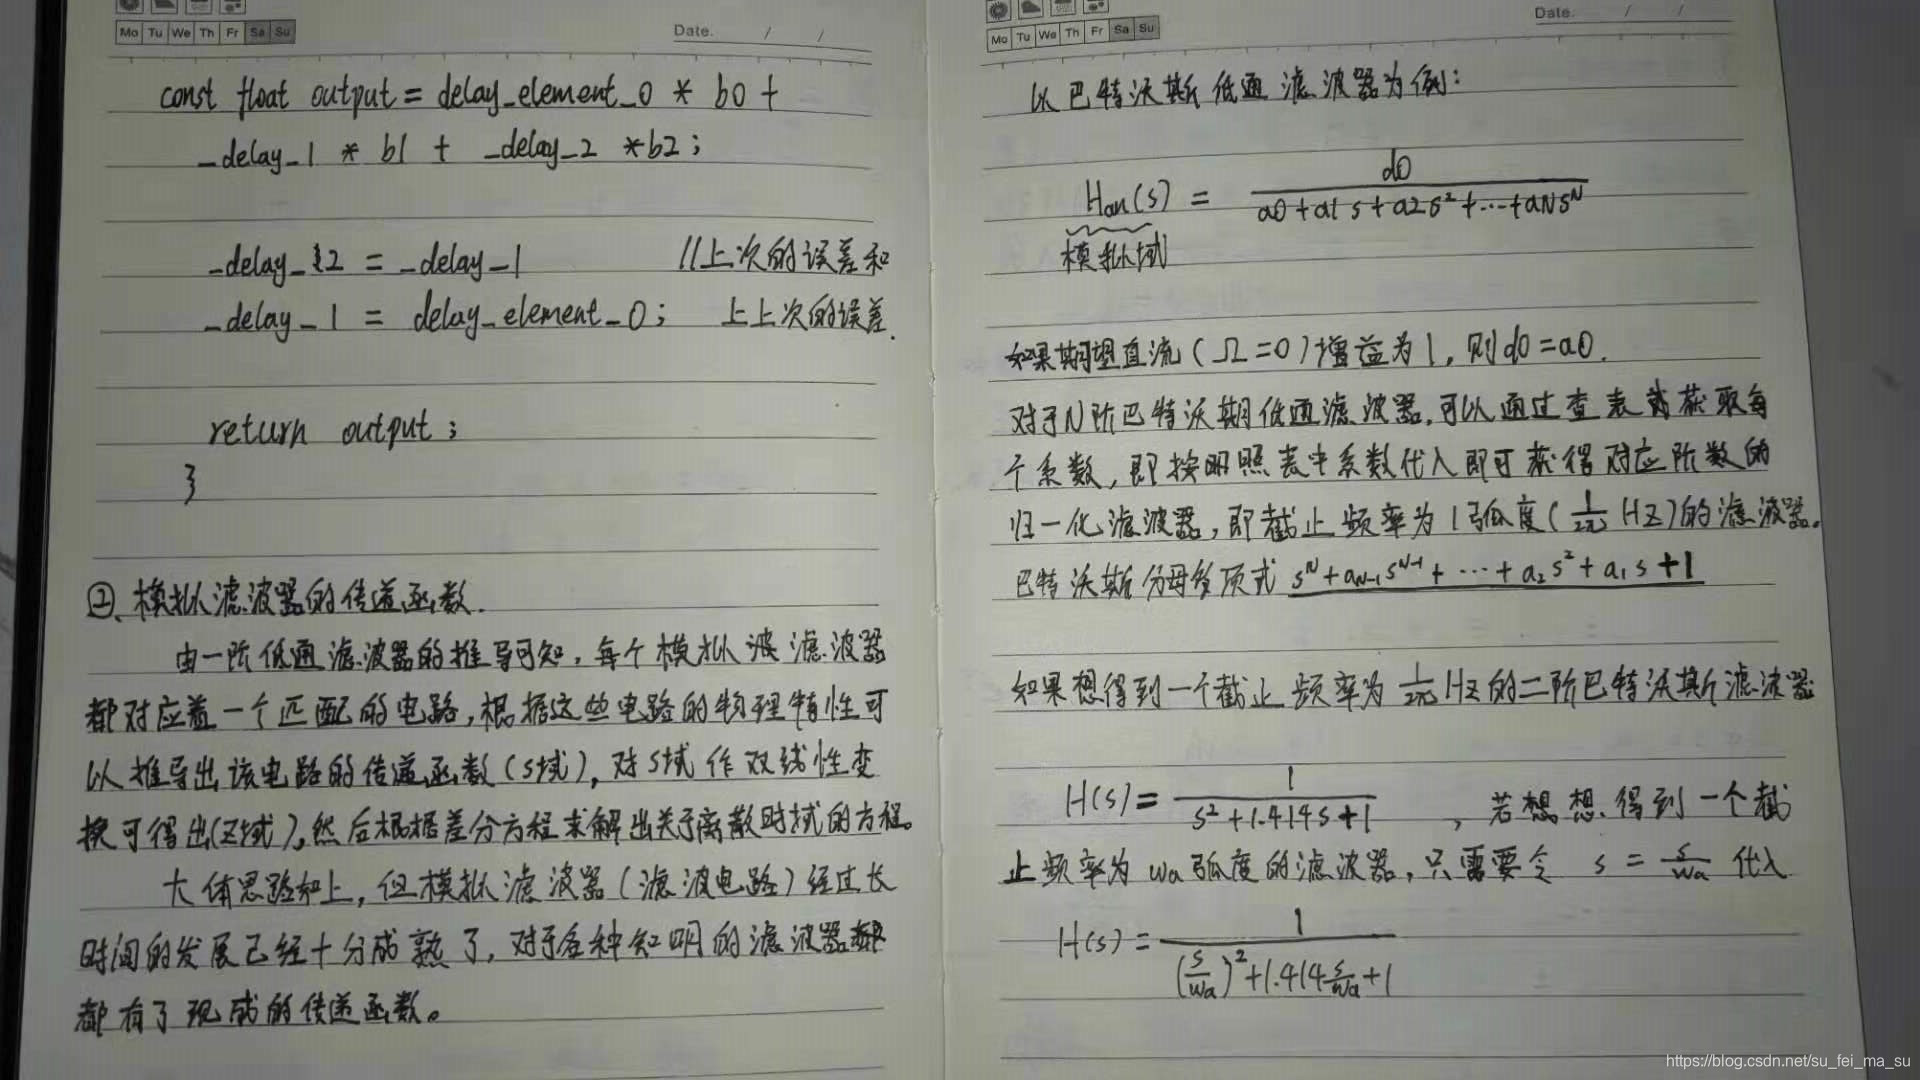 Mo Tu We Th Fr Sa Su
Date. / /
const float output = delay_element_0 * b0 +
_delay_1 * b1 + _delay_2 * b2;
_delay_2 = _delay_1 //上次的误差和
_delay_1 = delay_element_0; 上上次的误差.
return output;
}
②、模拟滤波器的传递函数.
由一阶低通滤波器的推导可知,每个模拟波滤波器
都对应着一个匹配的电路,根据这些电路的物理特性可
以推导出该电路的传递函数(s域),对s域作双线性变
换可得出(Z域),然后根据差分方程求解出关于离散时域的方程。
大体思路如上,但模拟滤波器(滤波电路)经过长
时间的发展已经十分成熟了,对于各种知明的滤波器
都有了现成的传递函数。
Mo Tu We Th Fr Sa Su
Date. / /
以巴特沃斯低通滤波器为例:
Han(s) = d0 / (a0+a1s+a2s²+···+aNs^N)
模拟域
如果期望直流(Ω=0)增益为1,则d0=a0.
对于N阶巴特沃斯低通滤波器,可以通过查表获取每
个系数,即按照表中系数代入即可获得对应阶数的
归一化滤波器,即截止频率为1弧度(1/2π Hz)的滤波器。
巴特沃斯分母多项式 s^N + a_{N-1}s^{N-1} + ··· + a₂s² + a₁s + 1
如果想得到一个截止频率为 1/2π Hz的二阶巴特沃斯滤波器
H(s) = 1 / (s²+1.414s+1) ,若想想得到一个截
止频率为 wa弧度的滤波器,只需要令 s = s/wa 代入
H(s) = 1 / ((s/wa)²+1.414 s/wa+1)
https://blog.csdn.net/su_fei_ma_su